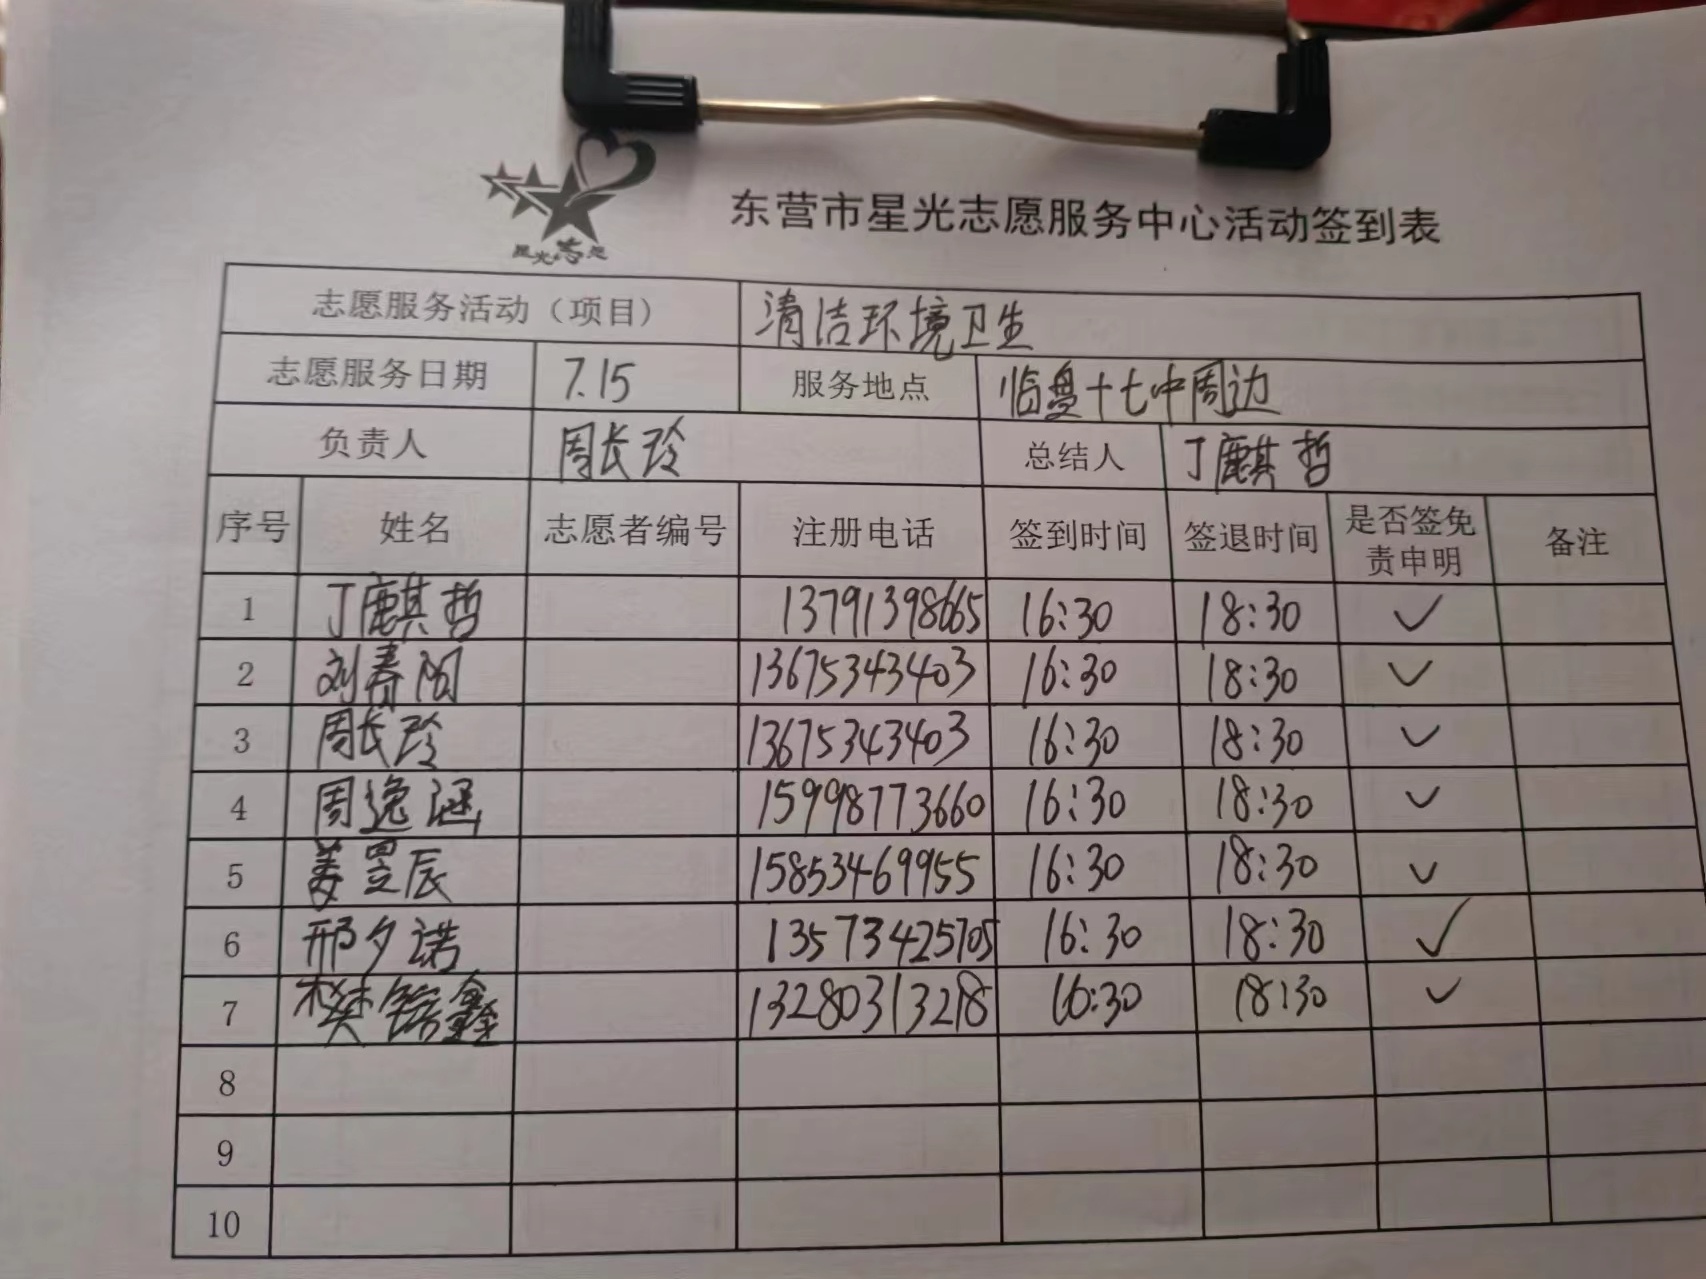 星光志愿
东营市星光志愿服务中心活动签到表
志愿服务活动（项目） 清洁环境卫生
志愿服务日期 7.15 服务地点 临盘十七中周边
负责人 周长玲 总结人 丁麒哲
序号 姓名 志愿者编号 注册电话 签到时间 签退时间 是否签免责申明 备注
1 丁麒哲 13791398665 16:30 18:30 ✓
2 刘春阳 13675343403 16:30 18:30 ✓
3 周长玲 13675343403 16:30 18:30 ✓
4 周逸涵 15998773660 16:30 18:30 ✓
5 姜昱辰 15853469955 16:30 18:30 ✓
6 邢夕诺 13573425705 16:30 18:30 ✓
7 樊鑫 13280313218 16:30 18:30 ✓
8
9
10